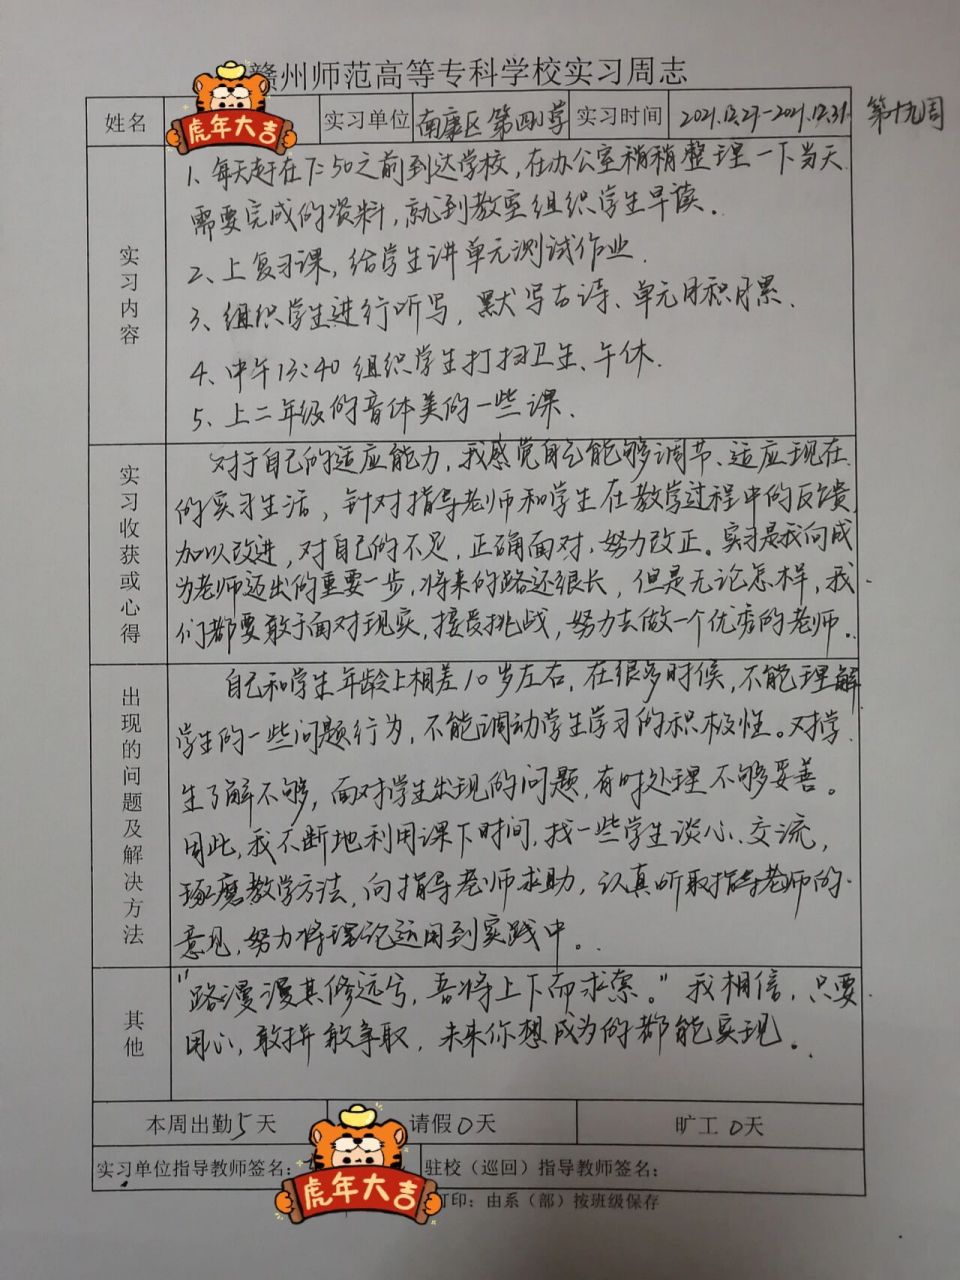 赣州师范高等专科学校实习周志
姓名 虎年大吉 实习单位 南康区第四小学 实习时间 2021.12.27-2021.12.31 第十九周
实习内容
1、每天赶在7:50之前到达学校，在办公室稍稍整理一下当天
需要完成的资料，就到教室组织学生早读。
2、上复习课，给学生讲单元测试作业.
3、组织学生进行听写，默写古诗、单元日积月累.
4、中午13:40组织学生打扫卫生、午休.
5、上二年级的音体美的一些课.
实习收获或心得
对于自己的适应能力，我感觉自己能够调节、适应现在
的实习生活，针对指导老师和学生在教学过程中的反馈
加以改进，对自己的不足，正确面对，努力改正。实习是我向成
为老师迈出的重要一步，将来的路还很长，但是无论怎样，我
们都要敢于面对现实，接受挑战，努力去做一个优秀的老师。
出现的问题及解决方法
自己和学生年龄上相差10岁左右，在很多时候，不能理解
学生的一些问题行为，不能调动学生学习的积极性。对学
生了解不够，面对学生出现的问题，有时处理不够妥善。
因此，我不断地利用课下时间，找一些学生谈心、交流，
琢磨教学方法，向指导老师求助，认真听取指导老师的
意见，努力将理论运用到实践中。
其他
“路漫漫其修远兮，吾将上下而求索。”我相信，只要
用心，敢拼敢争取，未来你想成为的都能实现。
本周出勤5天 请假0天 旷工0天
实习单位指导教师签名： 驻校（巡回）指导教师签名：
虎年大吉 打印：由系（部）按班级保存